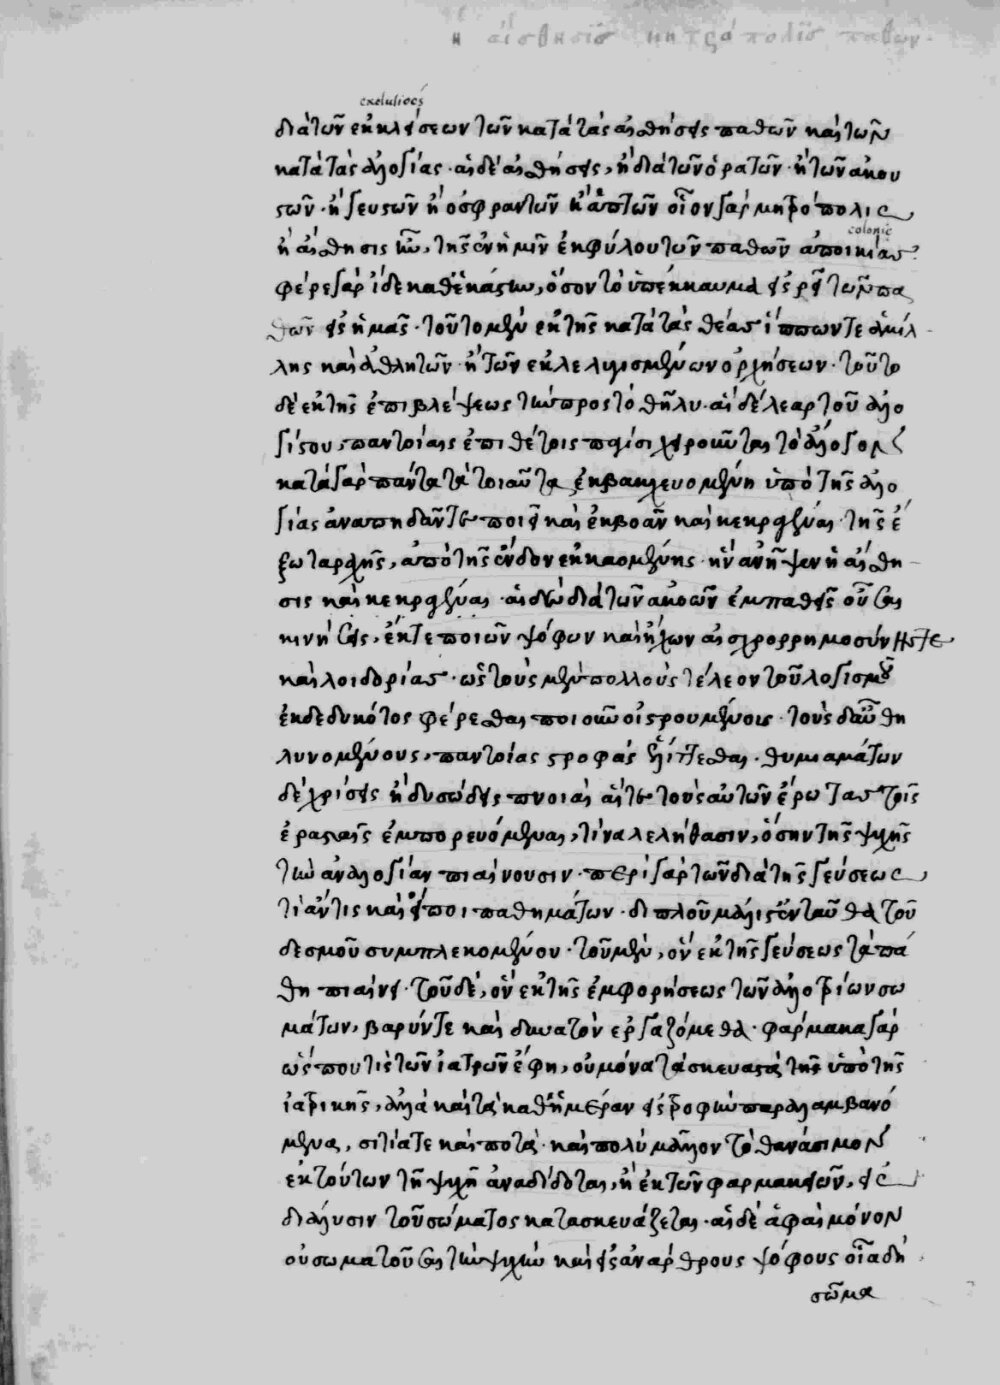 exclusioēs
διὰ τῶν ἐκκλίσεων τῶν κατὰ τὰς αἰσθήσεις παθῶν καὶ τῶν
κατὰ τὰς ἀλογίας · αἱ δὲ αἰσθήσεις, ἢ διὰ τῶν ὁρατῶν · ἢ τῶν ἀκου
στῶν · ἢ γευστῶν ἢ ὀσφραντῶν ἢ ἁπτῶν οἷον γὰρ μητρόπολις
colonię
ἡ αἴσθησις ἦν, τῆς ἐν ἡμῖν ἐκφύλου τῶν παθῶν ἀποικίας ·
φέρε γὰρ ἴδε καθ' ἑκάστην, ὅσον τὸ ὑπέκκαυμα εἰσρεῖ τῶν πα
θῶν εἰς ἡμᾶς · τοῦτο μὲν ἐκ τῆς κατὰ τὰς θέας ἵππων τε ἁμίλ-
λης καὶ ἀθλητῶν · ἢ τῶν ἐκλελυγισμένων ὀρχήσεων · τοῦτο
δὲ ἐκ τῆς ἐπιβλέψεως τὴν πρὸς τὸ θῆλυ · αἱ δέλεαρ τοῦ ἀλο
γίστου, παντοίαις ἐπιθέτοις παγίσι χειροῦνται τὸ ἄλογον
κατὰ γὰρ πάντα τὰ τοιαῦτα ἐκβακχευομένη ὑπὸ τῆς ἀλο
γίας ἀναπηδᾶν τε ποιεῖ καὶ ἐκβοᾶν καὶ κεκραγέναι · τῆς ἔ
ξω ταραχῆς, ἀπὸ τῆς ἔνδον ἐκκαομένης · ἣν ἀνῆψεν ἡ αἴσθη-
σις καὶ κεκραγέναι · αἱ δὲ διὰ τῶν ἀκοῶν ἐμπαθεῖς οὖσαι
κινήσεις, ἔκ τε ποιῶν ψόφων καὶ ἤχων αἰσχρορρημοσύνης τε
καὶ λοιδορίας · ὡς τοὺς μὲν πολλοὺς τέλεον τοῦ λογισμοῦ
ἐκδεδυκότος φέρεσθαι ποιοῦσιν οἰστρουμένους · τοὺς δ' αὖ θη
λυνομένους, παντοίας στροφὰς ἑλίττεσθαι · θυμιαμάτων
δὲ χρίσεις ἢ εὐώδεις πνοιαὶ αἵ τε τοὺς αὐτῶν ἔρωτας τοῖς
ἐρασταῖς ἐμπορευόμεναι, τίνα λελήθασιν, ὅσην τῆς ψυχῆς
τὴν ἀλογίαν πιαίνουσιν · περὶ γὰρ τῶν διὰ τῆς γεύσεως
τί ἄν τις καὶ εἴποι παθημάτων · διπλοῦ μάλιστ' ἐνταῦθα τοῦ
δεσμοῦ συμπλεκομένου · τοῦ μὲν, ὃν ἐκ τῆς γεύσεως τὰ πά
θη πιαίνει · τοῦ δὲ, ὃν ἐκ τῆς ἐμφορήσεως τῶν ἀλλοτρίων σω
μάτων, βαρύν τε καὶ δυνατὸν ἐργαζόμεθα · φάρμακα γὰρ
ὥς που τὶς τῶν ἰατρῶν ἔφη, οὐ μόνα τὰ σκευαστὰ τῆς ὑπὸ τῆς
ἰατρικῆς, ἀλλὰ καὶ τὰ καθ' ἡμέραν εἰς τροφὴν παραλαμβανό
μενα, σιτία τε καὶ ποτά · καὶ πολὺ μᾶλλον τὸ θανάσιμον
ἐκ τούτων τῇ ψυχῇ ἀναδίδοται, ἢ ἐκ τῶν φαρμακειῶν, εἰς
διάλυσιν τοῦ σώματος κατασκευάζεται · αἱ δὲ ἁφαὶ μόνον
οὐ σωματοῦσαι τὴν ψυχὴν καὶ εἰς ἀνάρθρους ψόφους οἷα δὴ
σῶμα